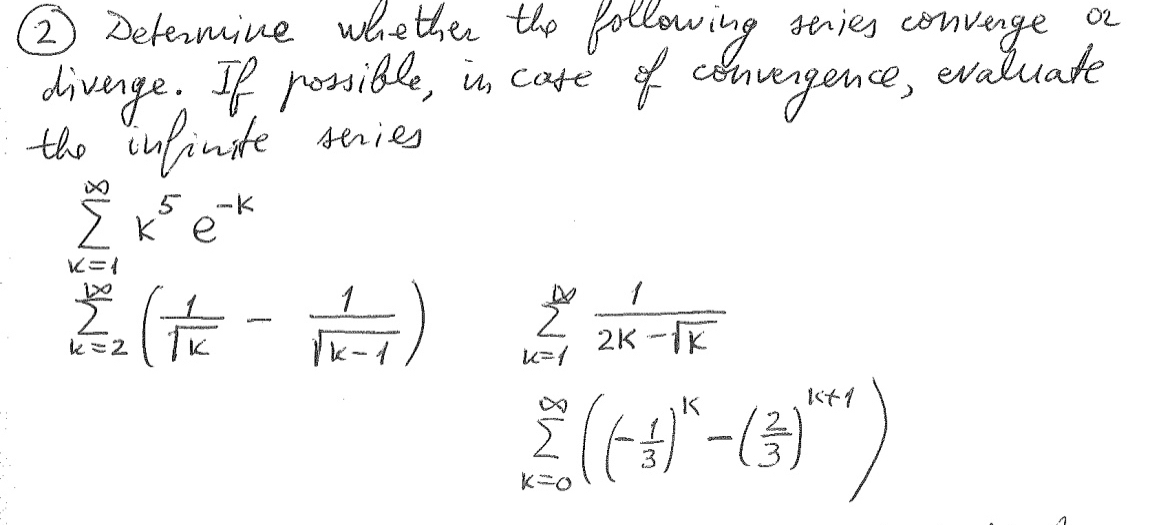 ② Determine whether the following series converge or
diverge. If possible, in case of convergence, evaluate
the infinite series
∞
Σ k⁵ e⁻ᵏ
k=1
∞
Σ (1/√k - 1/√(k-1))
k=2
∞
Σ 1/(2k - √k)
k=1
∞
Σ ((-1/3)ᵏ - (2/3)ᵏ⁺¹)
k=0